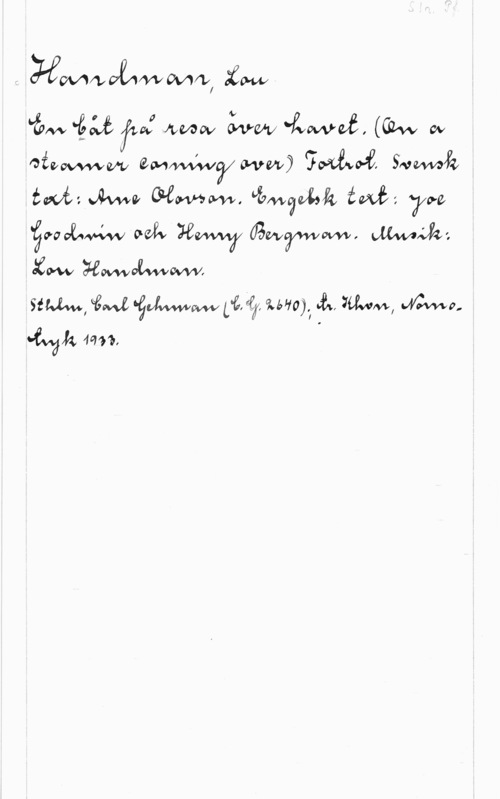 Handman, Lou
En båt på resa över havet. (On a
steamer coming over) Foxtrot. Svensk
text: Arne Olovson. Engelsk text: Joe
Goodwin och Henry Bergman. Musik:
Lou Handman.
Sthlm, Carl Gehrman (C. G. 2640); tr. Khvn,
tryk 1933.